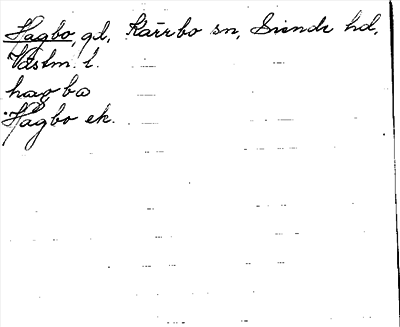 Hagbo, gd, Kärrbo sn, Siende hd,
Västm. l.
hagbo
Hagbo ek.